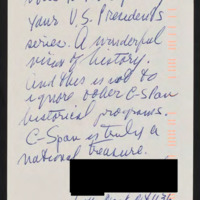 your U.S. Presidents
series. A wonderful
view of history.
And this is not to
ignore other C-Span
historical programs.
C-Span is truly a
national treasure.